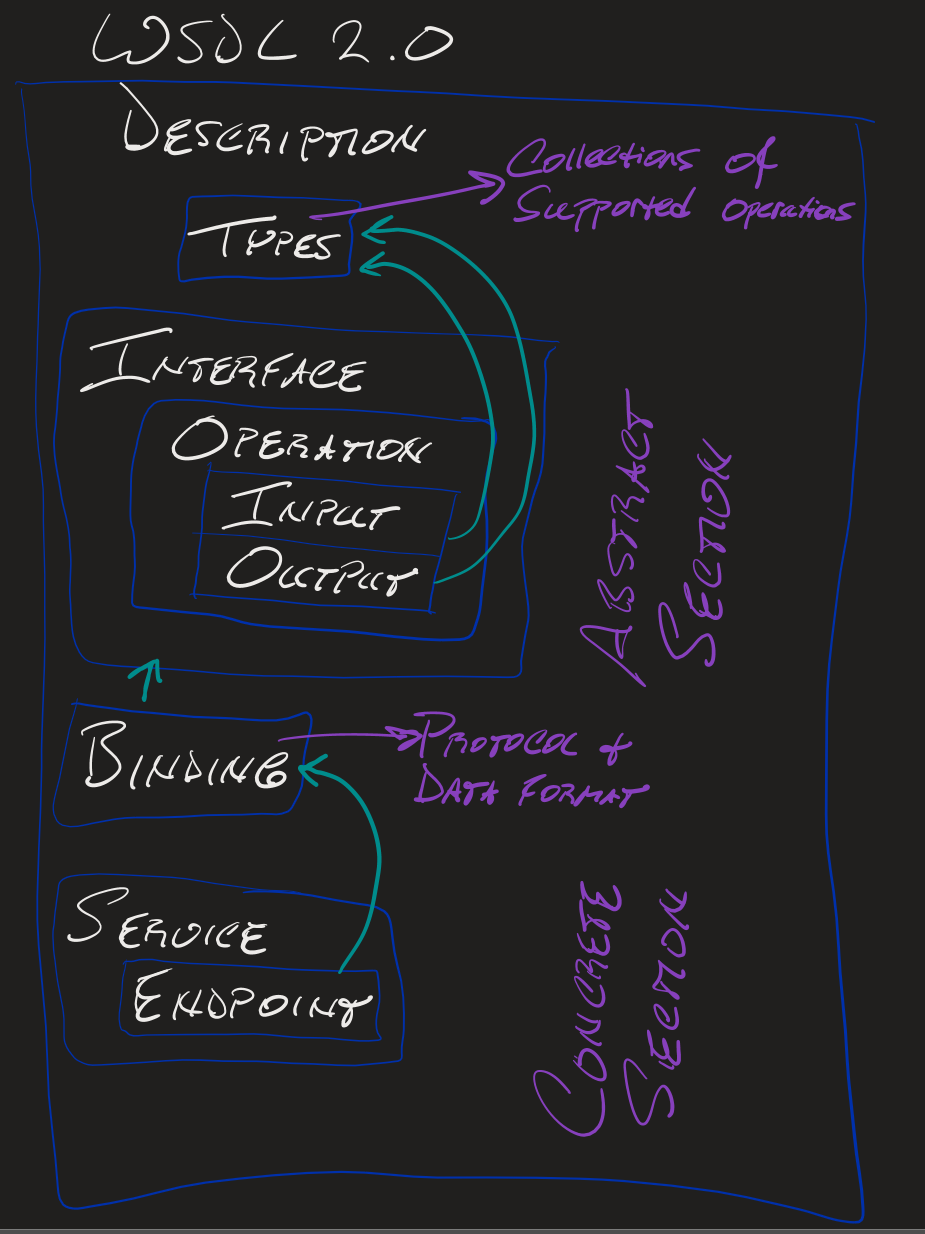 WSDL 2.0
DESCRIPTION
Collections of
Supported Operations
TYPES
INTERFACE
OPERATION
INPUT
OUTPUT
ABSTRACT
SECTION
BINDING
PROTOCOL &
DATA FORMAT
SERVICE
ENDPOINT
CONCRETE
SECTION